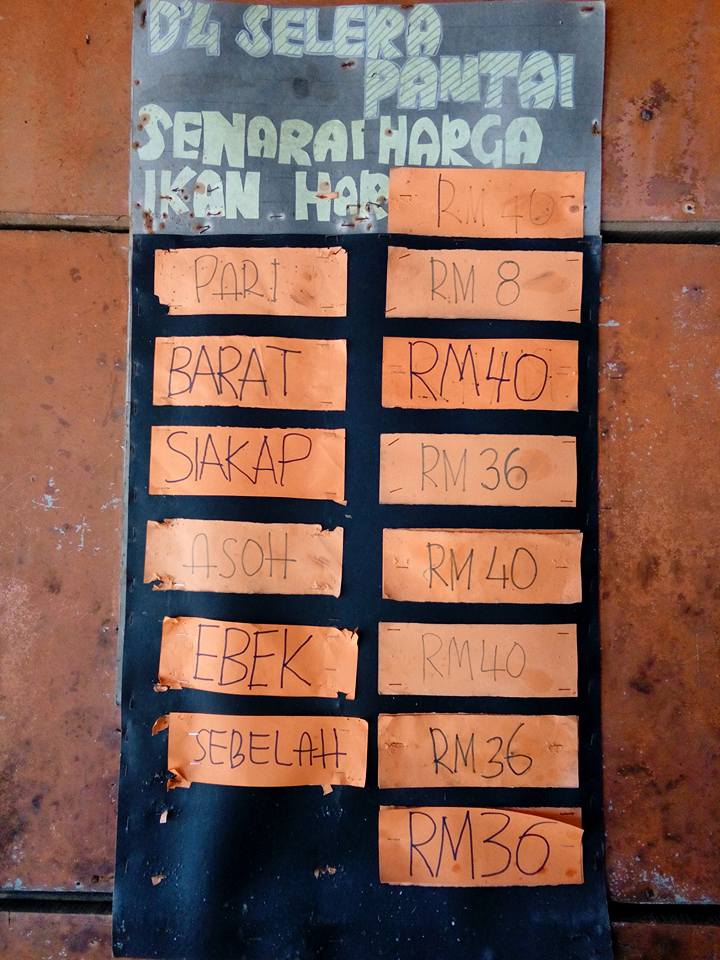 D'4 SELERA
PANTAI
SENARAI HARGA
IKAN HAR
RM 40
PARI RM 8
BARAT RM40
SIAKAP RM 36
ASOH RM 40
EBEK RM40
SEBELAH RM36
RM36